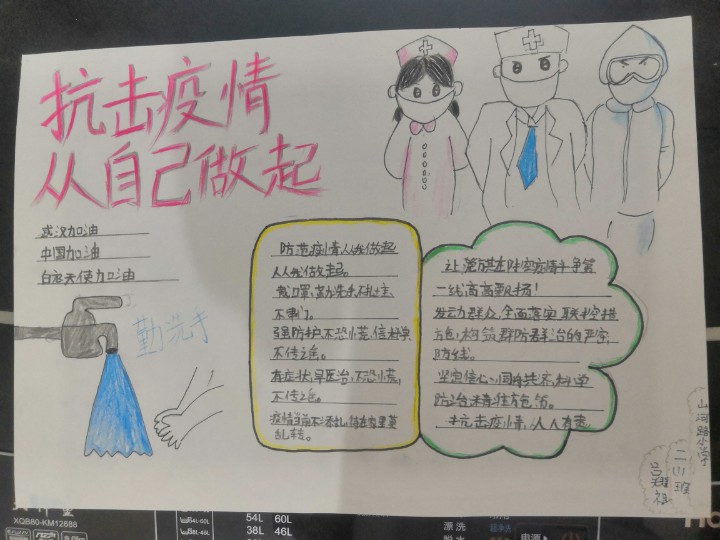 抗击疫情
从自己做起
武汉加油
中国加油
白衣天使加油
勤洗手
防范疫情从我做起
人人我做起。
戴口罩、勤洗手、
不串门。
强防护,不恐慌,信科学
不传谣。
有症状,早医治,不恐慌,
不传谣。
疫情当前不添乱,待在家里莫
乱转。
让党旗在防控疫情斗争第
一线高高飘扬!
发动群众,全面落实联控措
施,构筑群防群治的严密
防线。
坚定信心、同舟共济、科学
防治、精准施策。
抗击疫情,人人有责
山河路小学
二(1)班
XQB80-KM12688
54L 60L
38L 46L
漂洗
脱水
电源